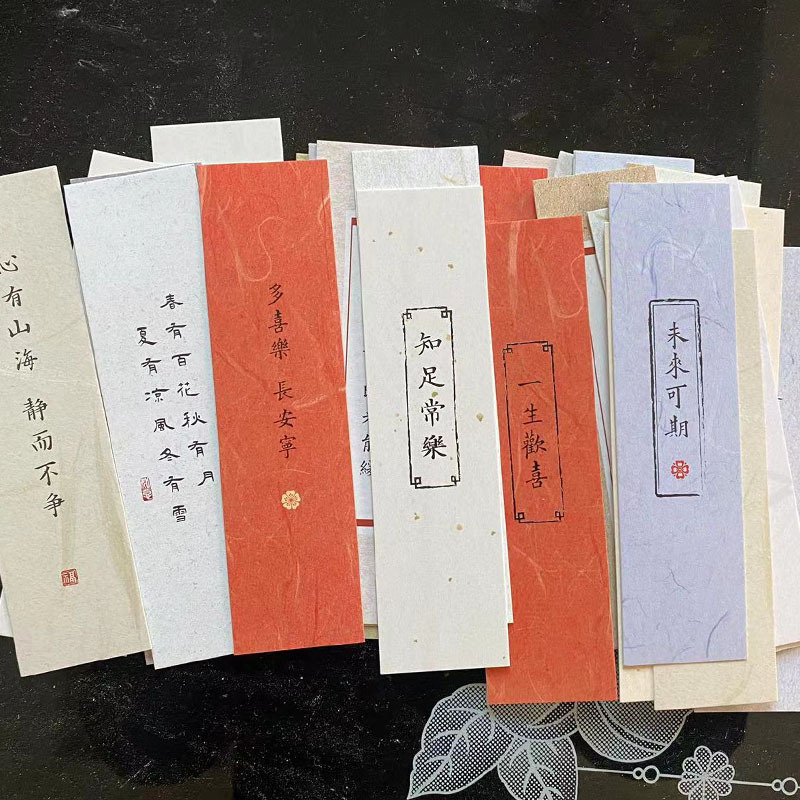 心有山海 静而不争
福
春有百花秋有月
夏有凉風冬有雪
多喜樂 長安寧
知足常樂
一生歡喜
未來可期